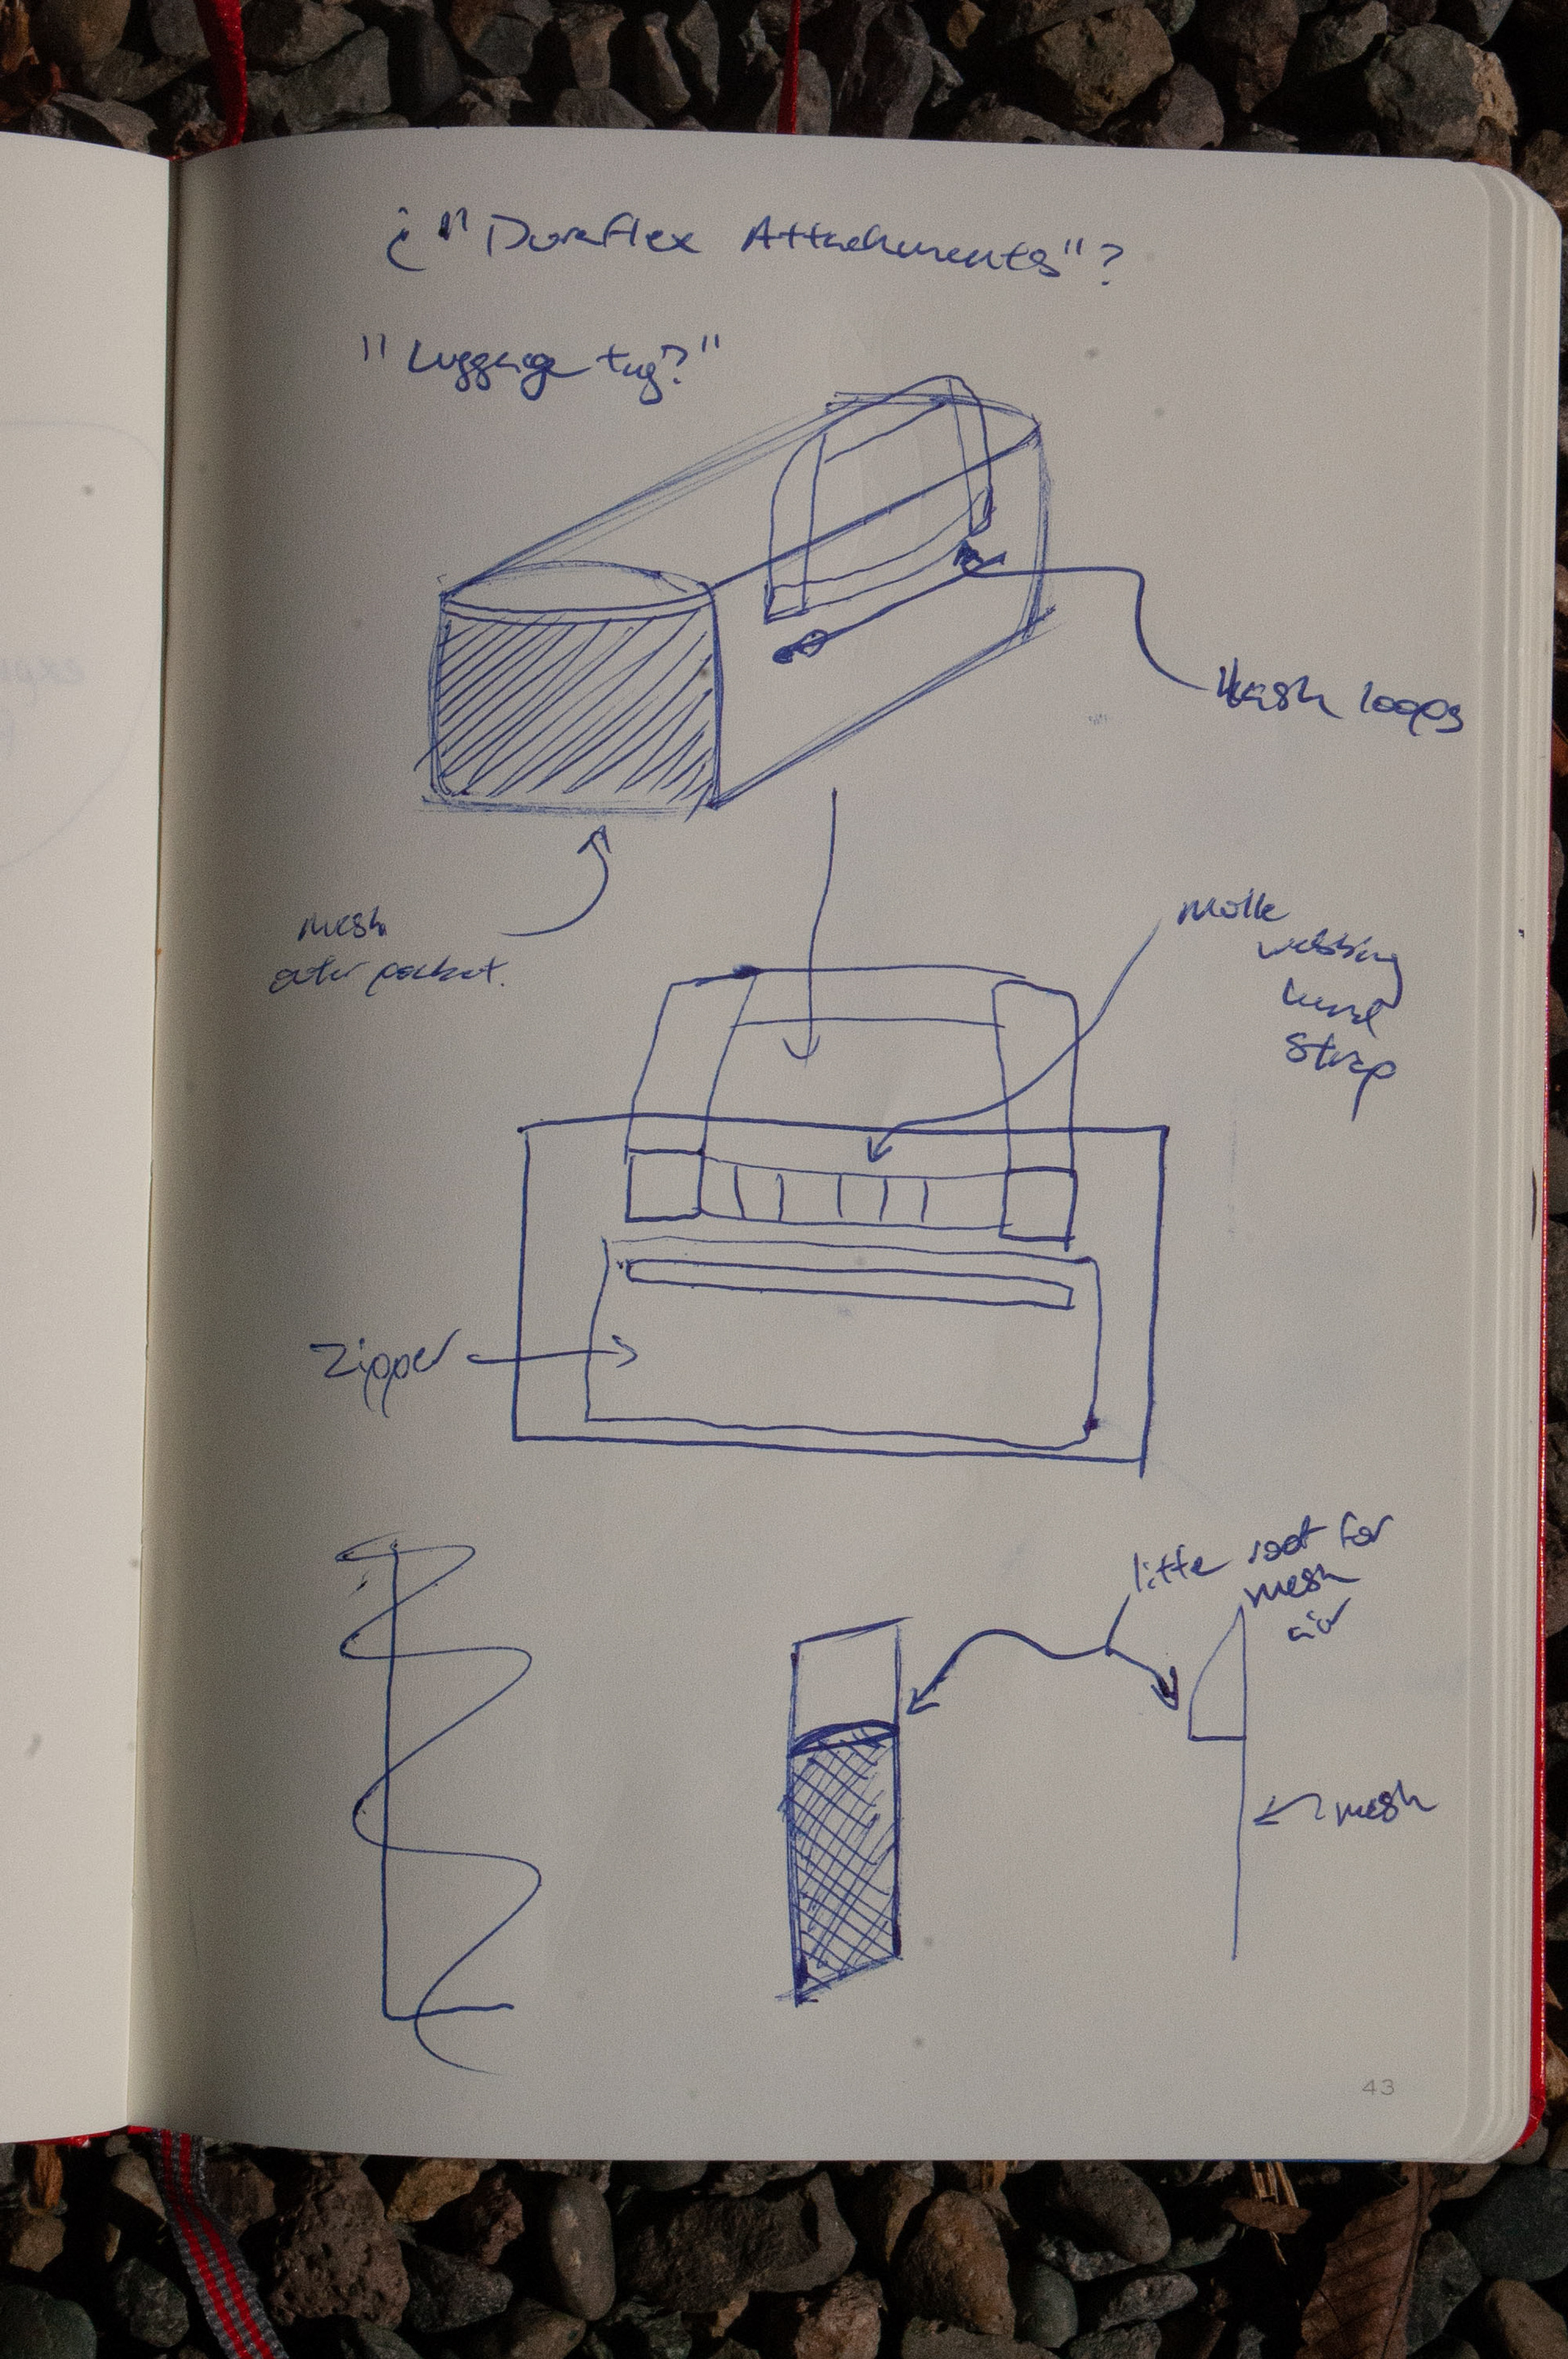 ¿"Duraflex Attachments"?
"Luggage tag?"
loops
mesh
outer pocket.
Molle
webbing
hand
strap
Zipper
little for
mesh
air
mesh
43